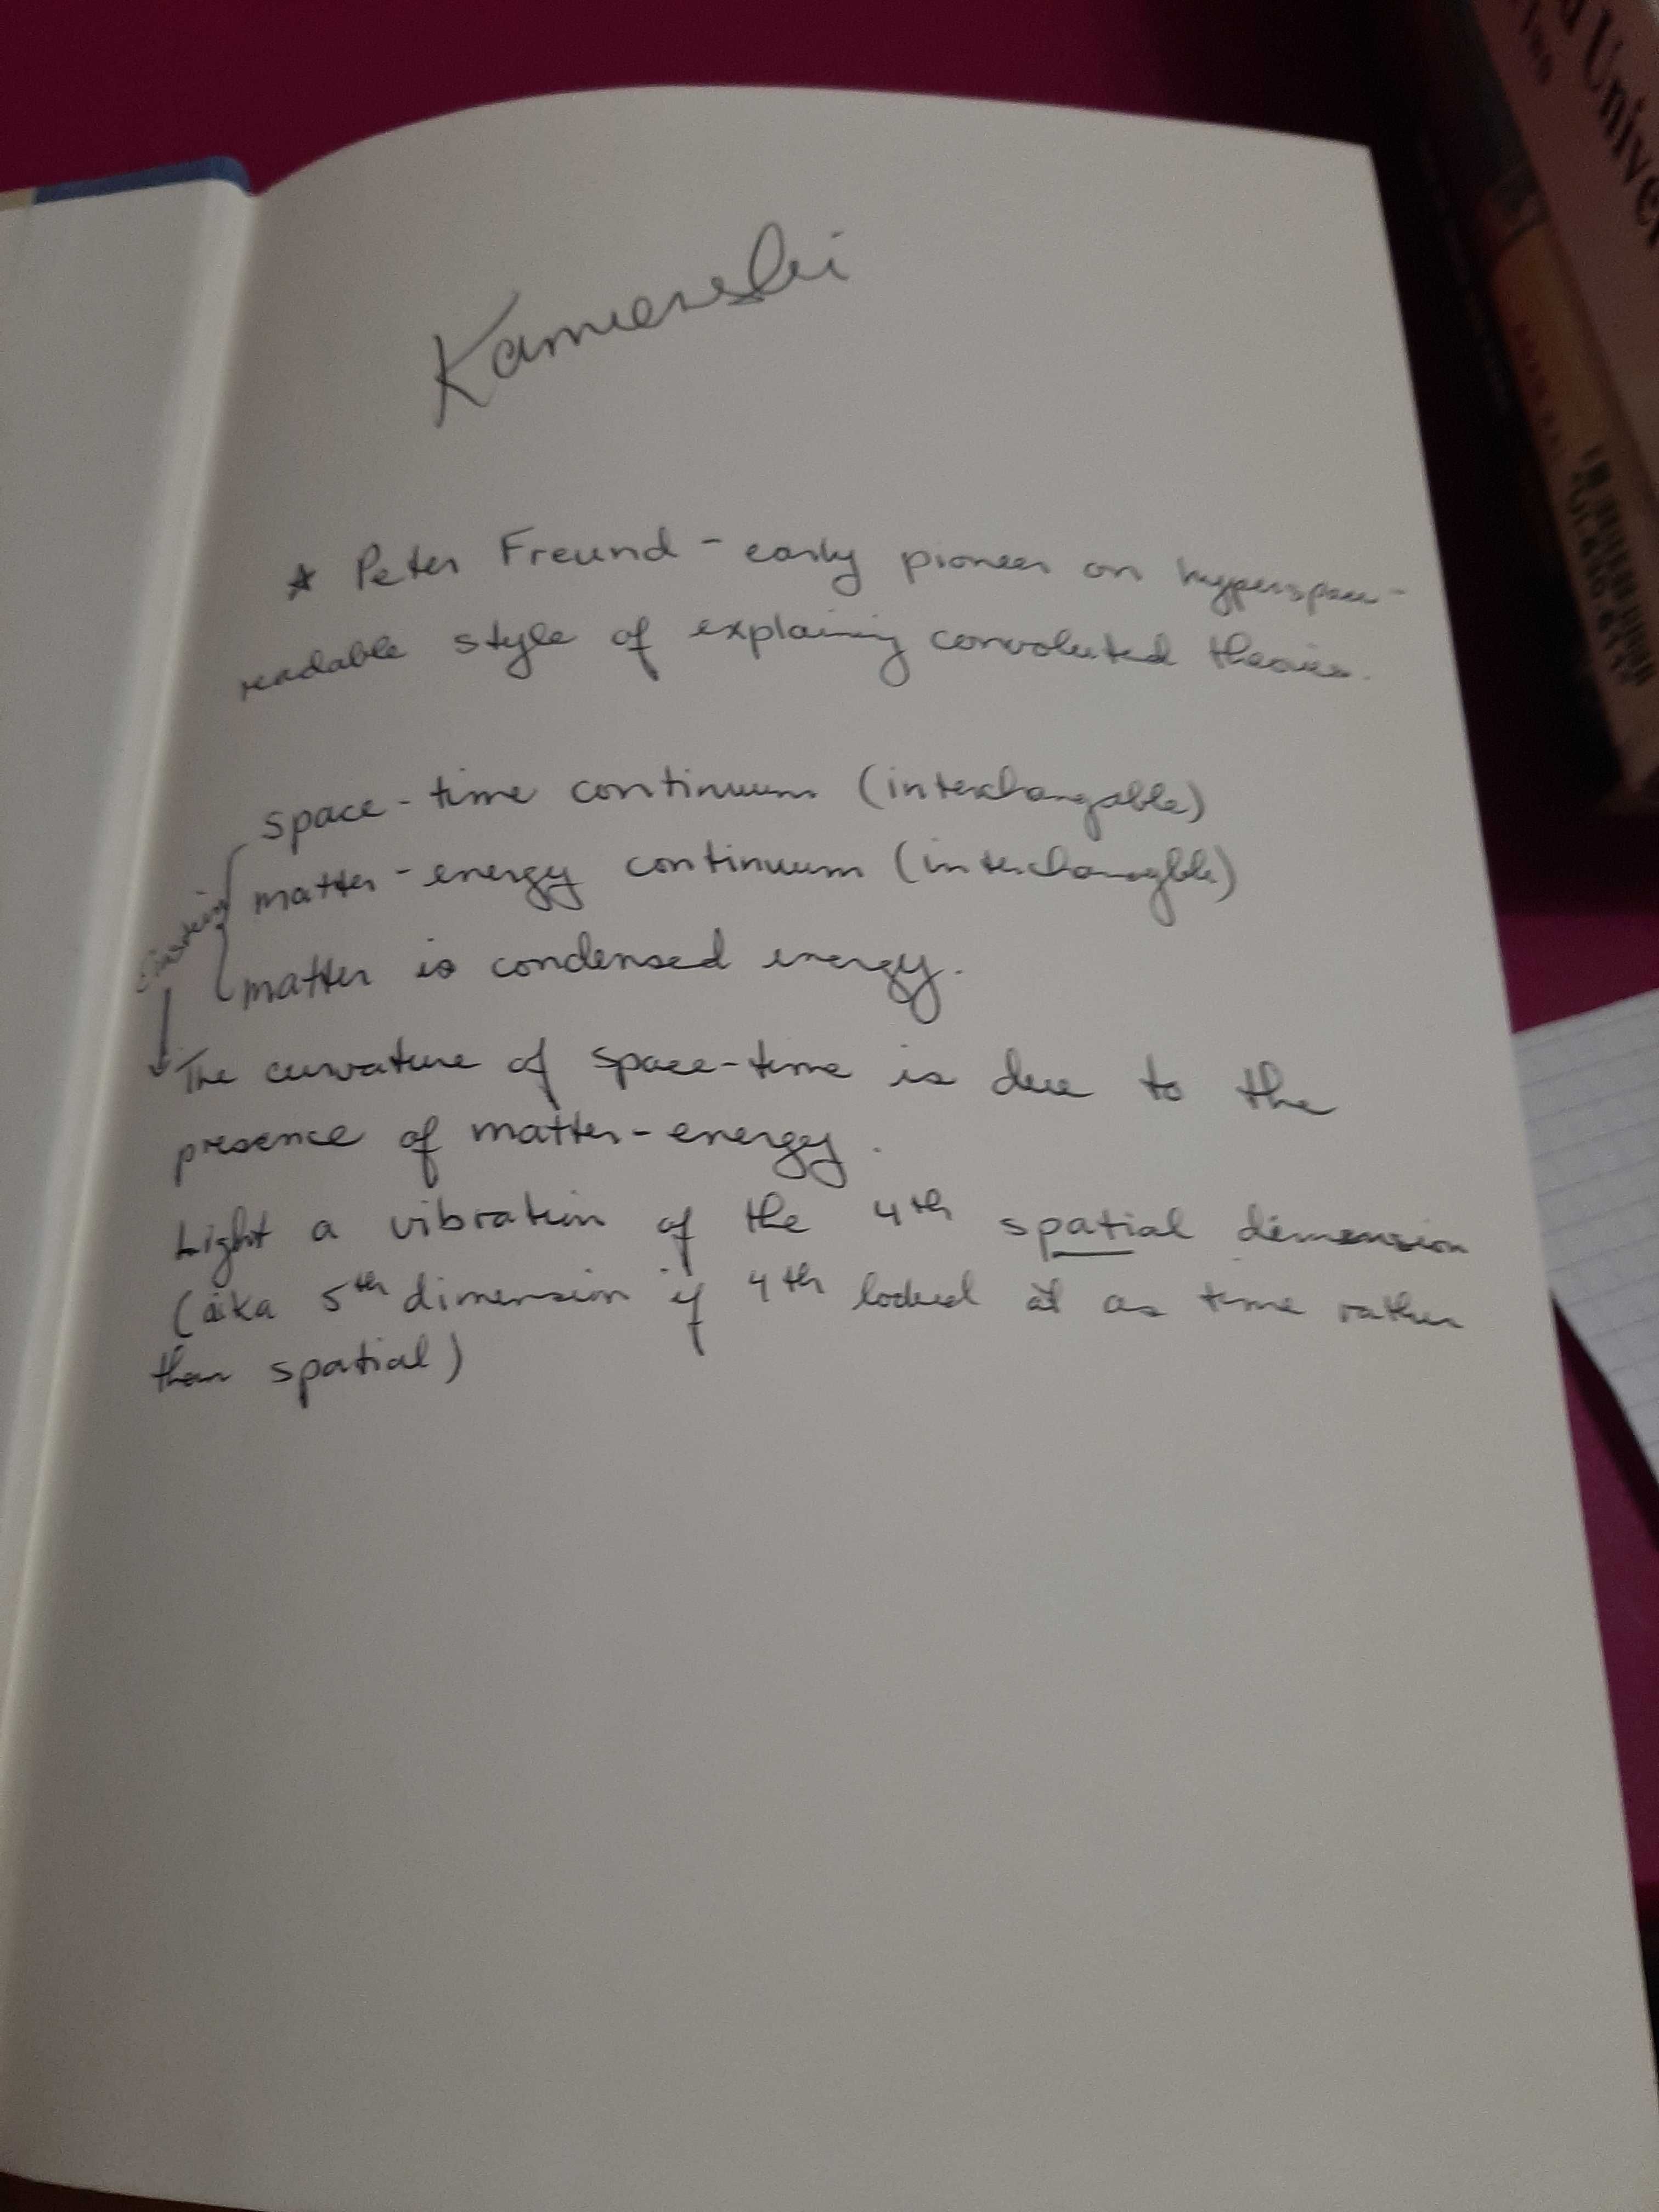 Kamienski
* Peter Freund - early pioneer on hyperspace -
readable style of explaining convoluted theories.
space-time continuum (interchangable)
matter-energy continuum (interchangble)
Einstein
matter is condensed energy.
The curvature of space-time is due to the
presence of matter-energy.
Light a vibration of the 4th spatial dimension
(aka 5th dimension if 4th looked at as time rather
than spatial)
Univer
Two